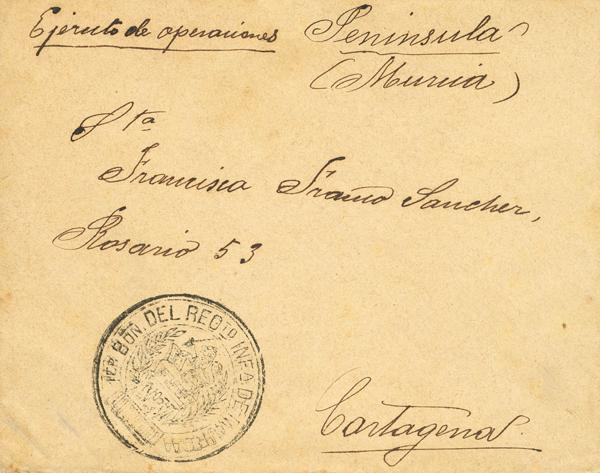 Ejército de operaciones Peninsula
(Murcia)
Sta
Francisca Franco Sancher,
Rosario 53
1ER BÓN. DEL REGTO INFA DE
Cartagena.